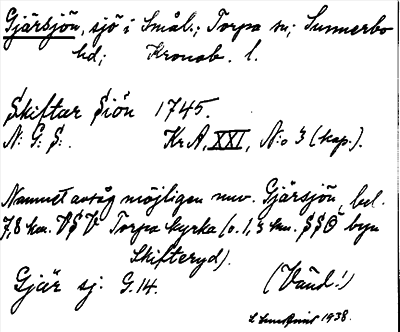 Gjärsjön, sjö i Smål.; Torpa sn; Sunnerbo
hd; Kronob. l.
Skiftar Siön 1745.
N: G: S:. KrA, XXI, N:o 3 (kap.).
Namnet avsåg möjligen nuv. Gjärsjön, bel.
7,8 km. VSV Torpa kyrka (o. 1,3 km. SSO byn
Skifteryd).
Gjär sj: G.14. (Vänd!)
1938.